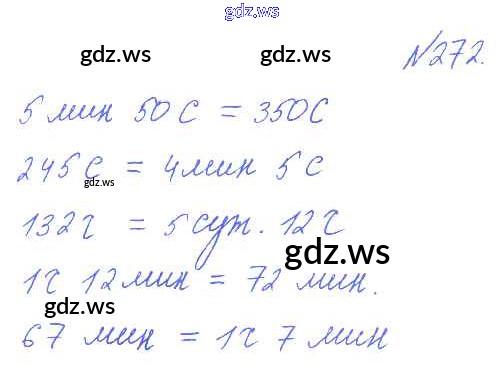 gdz.ws
gdz.ws gdz.ws
№272.
5 мин 50 с = 350 с
245 с = 4 мин 5 с
gdz.ws
132 ч = 5 сут. 12 ч
gdz.ws
1 ч 12 мин = 72 мин.
gdz.ws
67 мин = 1 ч 7 мин